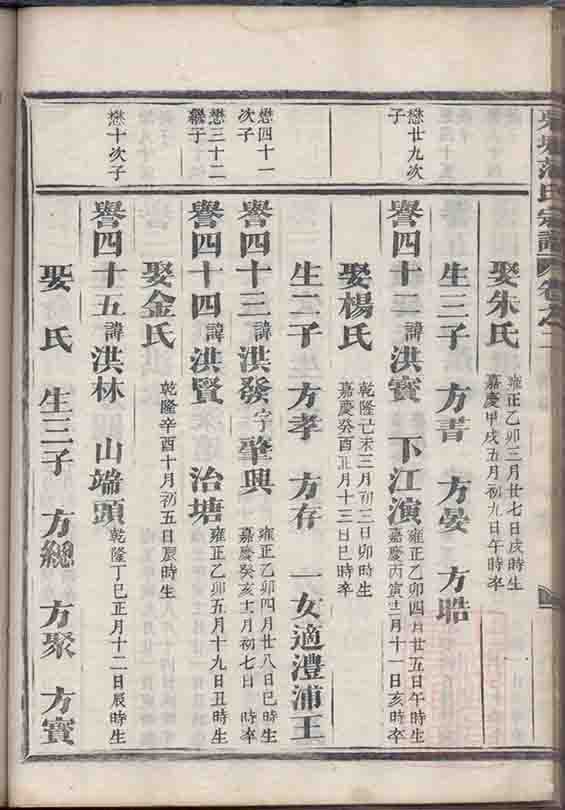 范氏宗譜 卷之二
娶朱氏 雍正乙卯三月廿七日戌時生
嘉慶甲戌五月初九日午時卒
生三子 方書 方晏 方晧
懋廿九次子
譽四十二 諱洪寶 下江演 雍正乙卯四月廿五日午時生
嘉慶丙寅十二月十一日亥時卒
娶楊氏 乾隆己未三月初三日卯時生
嘉慶癸酉正月十三日巳時卒
生二子 方孝 方存 一女適澧浦王
懋四十一次子
譽四十三 諱洪發 字肇興 雍正乙卯四月廿八日巳時生
嘉慶癸亥十一月初七日 時卒
懋三十二繼子
譽四十四 諱洪賢 治塘 雍正乙卯五月十九日丑時生
娶金氏 乾隆辛酉十月初五日辰時生
懋十次子
譽四十五 諱洪林 山端頭 乾隆丁巳正月十二日辰時生
娶 氏 生三子 方總 方聚 方寶